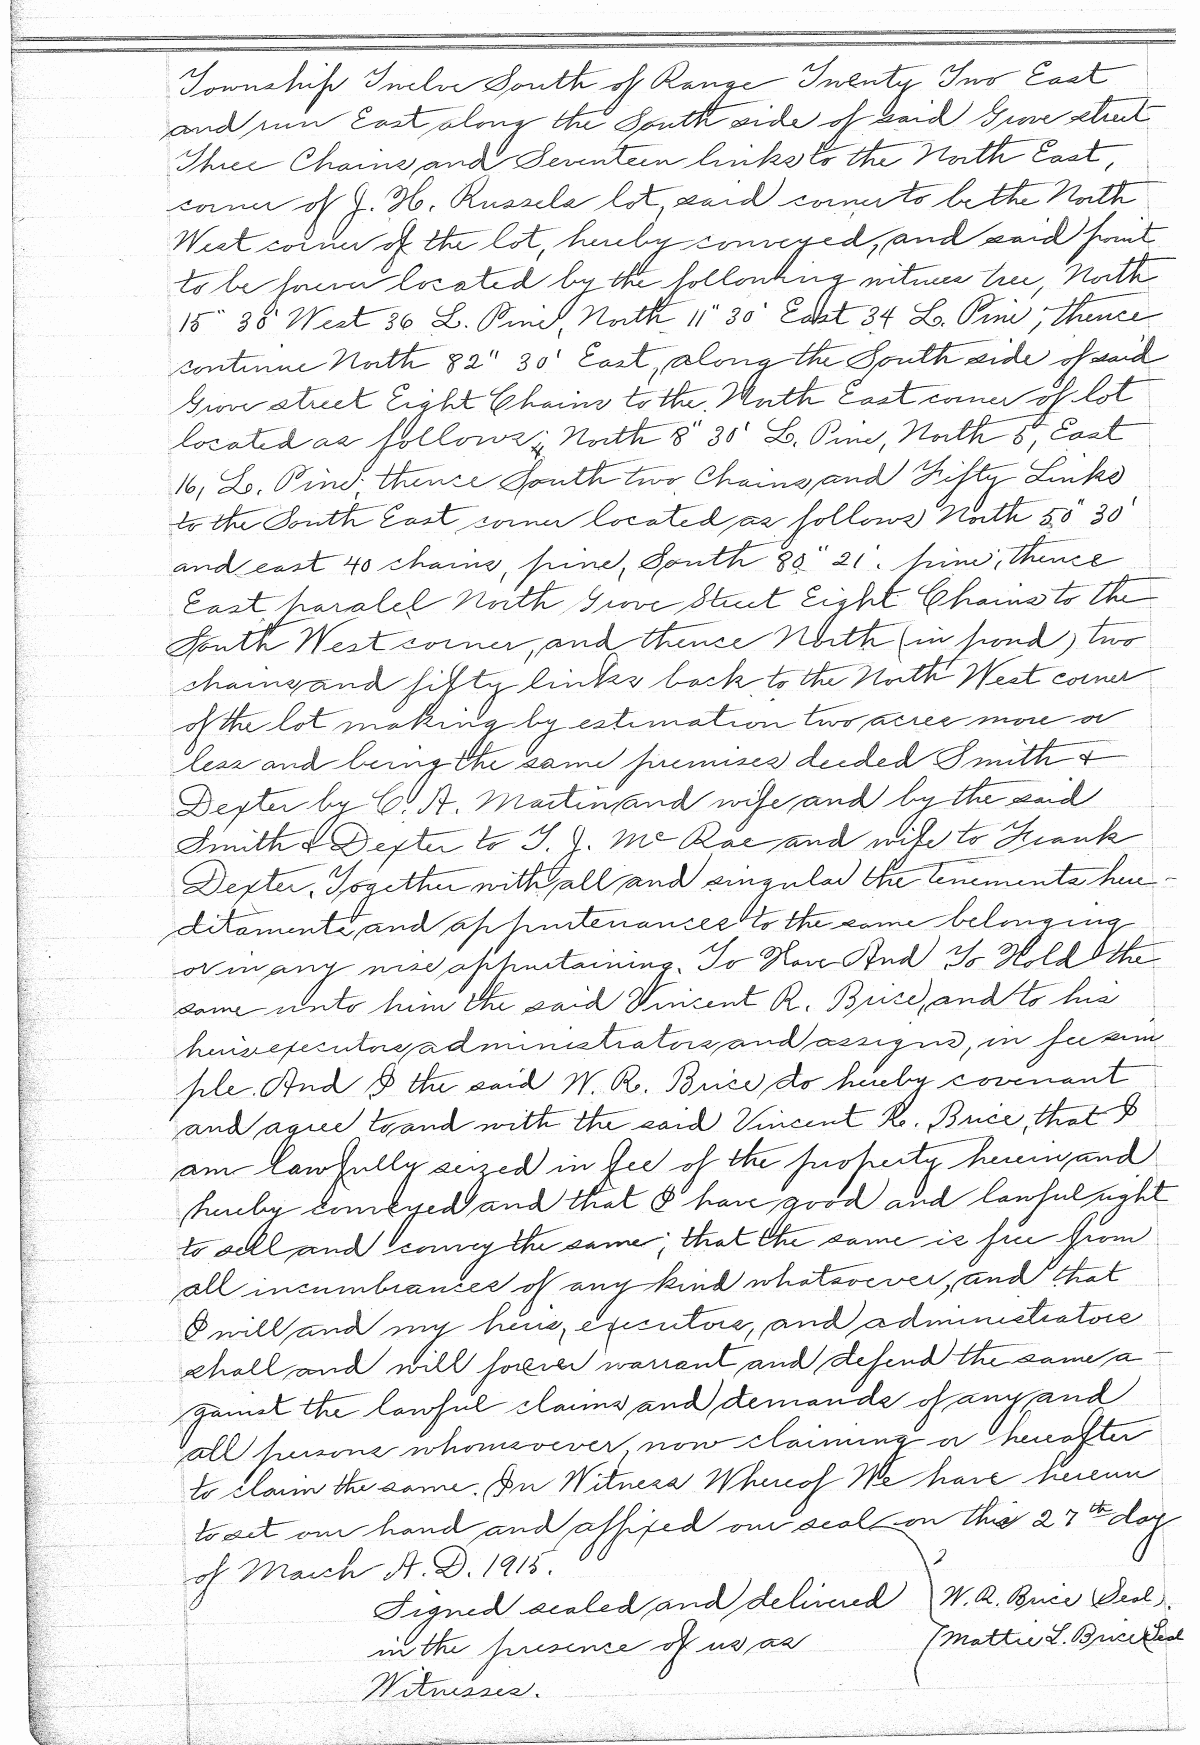 Township Twelve South of Range Twenty Two East
and run East along the South side of said Grove street
Three Chains and Seventeen links to the North East,
corner of J. H. Russels lot, said corner to be the North
West corner of the lot, hereby conveyed, and said point
to be forever located by the following witness tree, North
15" 30' West 36 L. Pine, North 11" 30' East 34 L. Pine; thence
continue North 82" 30' East, along the South side of said
Grove street Eight Chains to the North East corner of lot
located as follows; North 8" 30' L. Pine, North 5, East
16, L. Pine; thence South two Chains and Fifty Links
to the South East corner located as follows North 50" 30'
and east 40 chains, pine, South 80" 21'. pine; thence
East paralel North Grove Street Eight Chains to the
South West corner, and thence North (in pond) two
chains and fifty links back to the North West corner
of the lot making by estimation two acres more or
less and being the same premises deeded Smith &
Dexter by C. A. Martin and wife and by the said
Smith & Dexter to T. J. McRae and wife to Frank
Dexter. Together with all and singular the tenements here-
ditaments and appurtenances to the same belonging
or in any wise appurtaining. To Have And To Hold the
same unto him the said Vincent R. Brice, and to his
heirs executors administrators and assigns, in fee sim
ple. And I the said W. R. Brice do hereby covenant
and agree to and with the said Vincent R. Brice, that I
am lawfully seized in fee of the property herein and
hereby conveyed and that I have good and lawful right
to sell and convey the same; that the same is free from
all incumbrances of any kind whatsoever, and that
I will and my heirs, executors, and administrators
shall and will forever warrant and defend the same a-
gainst the lawful claims and demands of any and
all persons whomsoever, now claiming or hereafter
to claim the same. In Witness Whereof We have hereun
to set our hand and affixed our seal on this 27th day
of March A. D. 1915.
Signed sealed and delivered W. R. Brice (Seal).
in the presence of us as Mattie L. Brice (Seal
Witnesses.